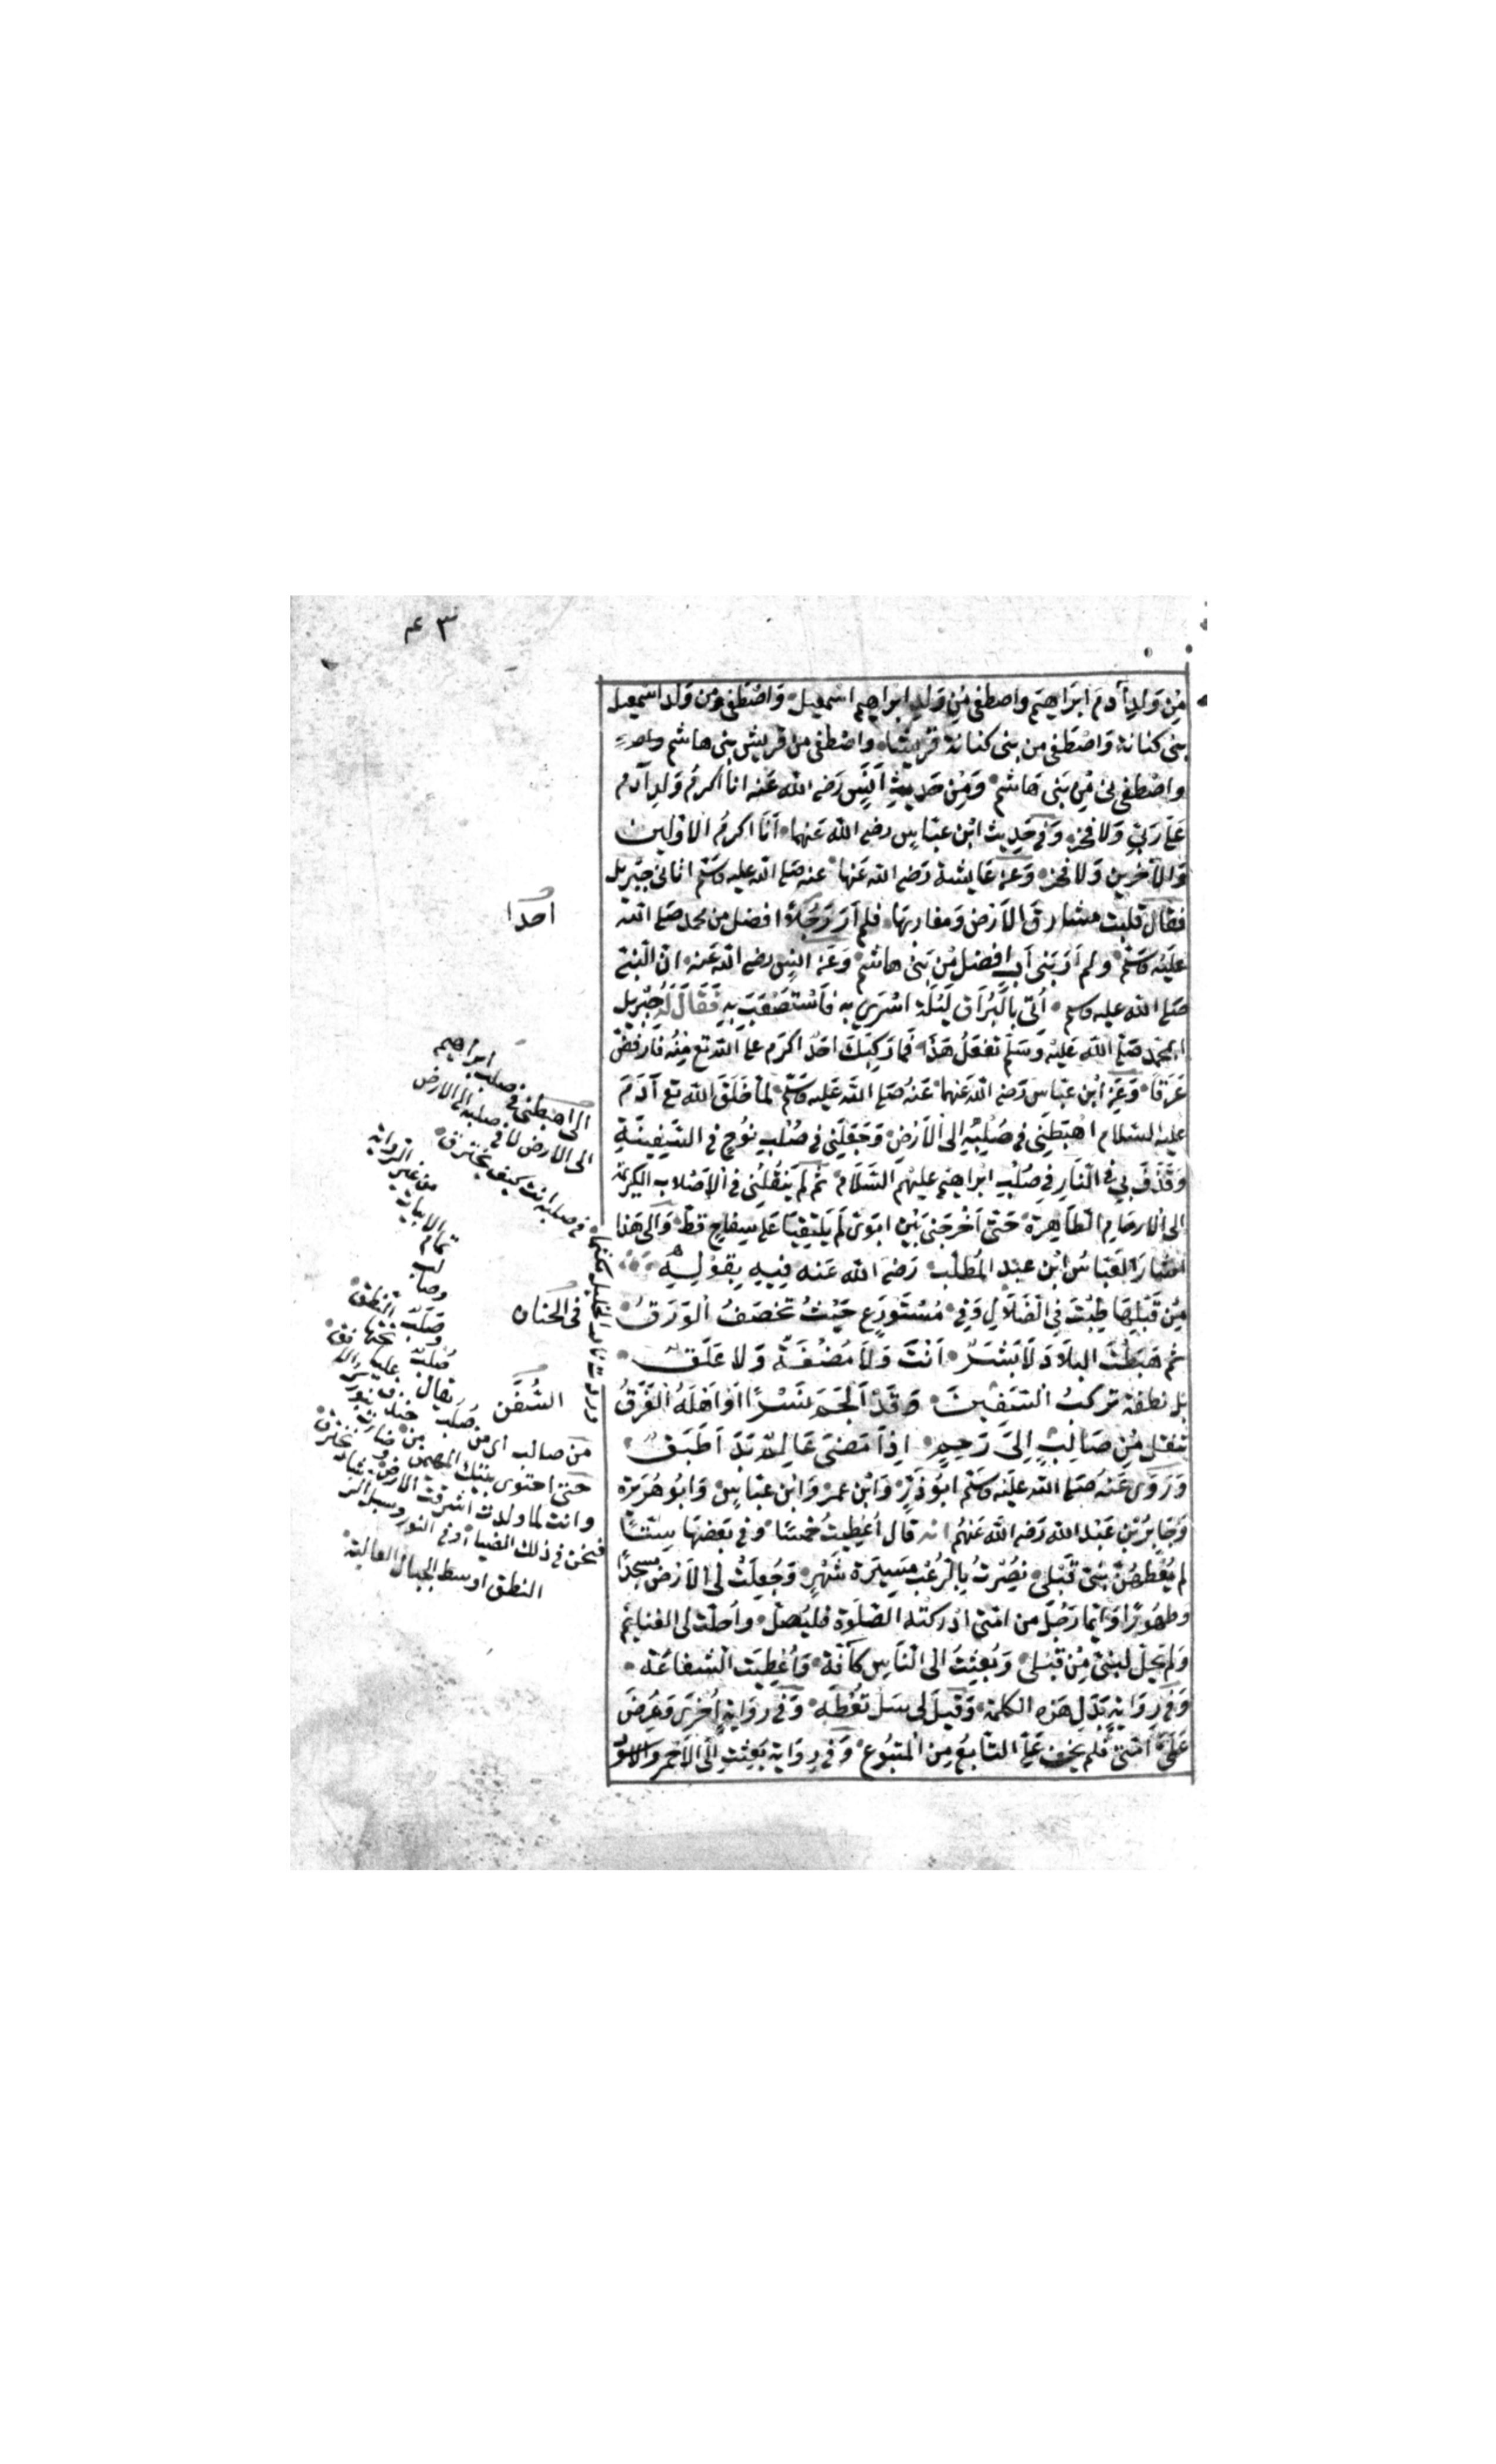 ٣ عـ
مِنْ وَلَدِ آدَمَ ابْرَاهِيمَ واصطفى مِنْ وَلَدِ ابراهيم اسمعيل وَاصْطَفى مِن وَلَد اسمعيل
بنى كنانة وَاصْطَفى من بنى كنانة قريشا واصْطفى من قريش بنى هاشم
واصْطفانى مِنْ بَنى هَاشم وَمِنْ حَديثِ اَنَسٍ رَضى الله عَنه انا اكرمُ وَلَدِ آدمَ
عَلَى رَبّى وَلا فخر وَفى حَدِيث ابْن عبَّاس رضى الله عَنهما اَنَا اكرمُ الاوّلين
وَالآخرين وَلا فخر وَعَنْ عَايشة رَضى الله عَنها عنه صَلى الله عليه وَسَلَّم اتانى جبْريل
فقال قلبت مشارق الاَرْض وَمغاربَها فلم اَرَ رَجُلاً افضل من محمد صَلى الله
عليْه وَسَلَّم ولم اَرَ بَنى اَب افضل مِنْ بَنى هاشم وَعَنْ انس رضى الله عَنه انّ النبىَّ
صَلى الله عليه وسلم اُتى بالبُرَاق لَيْلَة اسْرِىَ به فَاسْتَصْعَبَ عَليْهِ فَقَالَ لَهُ جبْريل
ابمحمد صَلى الله عَليْه وَسَلَّم تَفعَلُ هَذَا فمَا رَكِبَكَ احَدٌ اكرَم عَلَى الله تع مِنْهُ فَارفَضَّ
عَرَقًا وَعَنِ ابْن عبَاس رَضى الله عَنهما عَنْهُ صَلى الله عَليه وَسَلَّم لمَّا خَلَقَ الله تع آدَمَ
عليهِ السلام اهْبَطَنِى فى صُلْبِهِ الى الاَرْضِ وَجَعَلَنِى فى صُلْبِ نوُحٍ فى السَّفِينَةِ
وَقَذَفَ بى فى النَّارِ فى صُلْبِ ابْراهيم عليهم السَّلام ثم لَمْ يَنقُلنِى فى الاَصْلابِ الكريمة
الى الارحَامِ الطَّاهِرَة حَتى اَخْرَجَنى بَيْنَ ابَوَىَّ لَمْ يَلتقِيَا عَلى سِفاح قطُّ وَالى هَذا
اشارَ العَبَّاسُ ابْن عبد المُطَّلب رَضى الله عَنه فِيهِ بِقَوْلِهِ
مِنْ قَبْلِهَا طِبْتَ فِى الظِّلاَلِ وَفِى مُسْتَوْدَعٍ حَيْثُ تُخصَفُ الوَرَقُ
ثم هَبَطْتَ البِلاَدَ لاَ بَشَرٌ اَنْتَ وَلاَ مُضْغَةٌ وَلا عَلَقٌ
بل نطفة تركبُ السَّفِينَ وَقَدْ اَلجَمَ نَسْرًا وَاَهْلَهُ الغَرَقُ
تنقل مِن صَالِبٍ اِلَى رَحِمٍ اِذَا مَضَى عَالمٌ بَدَا طَبَقٌ
وَرَوَى عَنْهُ صَلى الله عليْه وسَلَّم ابُو ذَرّ وَابْن عمر وَابْن عبَّاس وَابُو هُرَيرة
وَجَابِرُ بْن عَبْد الله رَضى الله عَنهم انه قال اُعْطِيتُ خمسًا وفى بَعْضِهَا سِتًّا
لم يُعْطَهُنَّ نبِىٌّ قبْلى نُصِرْتُ بالرُّعْب مَسِيرَة شَهْرٍ وَجُعِلَتْ لى الاَرْض مسجدًا
وطهُورًا وَايّمَا رَجُل من امتى اَدْرَكته الصَّلوَة فليُصَلّ واُحلّت لى الغنايم
وَلم تحِلّ لنبىّ مِن قبْلى وَبُعِثتُ الى النَّاسِ كافة وَاُعْطِيَت الشفاعَة
وَفى رِوَايةٍ بَدَل هَذِه الكلمة وَقيلَ لى سَلْ تُعْطَهْ وَفى روَايةٍ اُخْرَى وَعُرِضَ
عَلَىَّ اُمَّتى فَلم يَخْفَ عَلَىَّ التَّابعُ مِنَ المَتبُوع وَفى رِوَاية بُعِثْتُ اِلَى الاَحْمَر وَالاسْوَد
احدا
الى اهبطنى فى صلب ابراهيم
الى الارض لما فى صلبه الى الارض
فى صلبه انت كيف يحترق
من غير الرواية
تمام الابيات
فى الجنان
السُّفَن
من صالب اى من صُلب
حتى احتوى بيتك المهيمن من خندف
وانت لما ولدت اشرقت الارض
فنحن فى ذلك الضياء وفى النور وسبل
النطق اوسط الجبال العالية